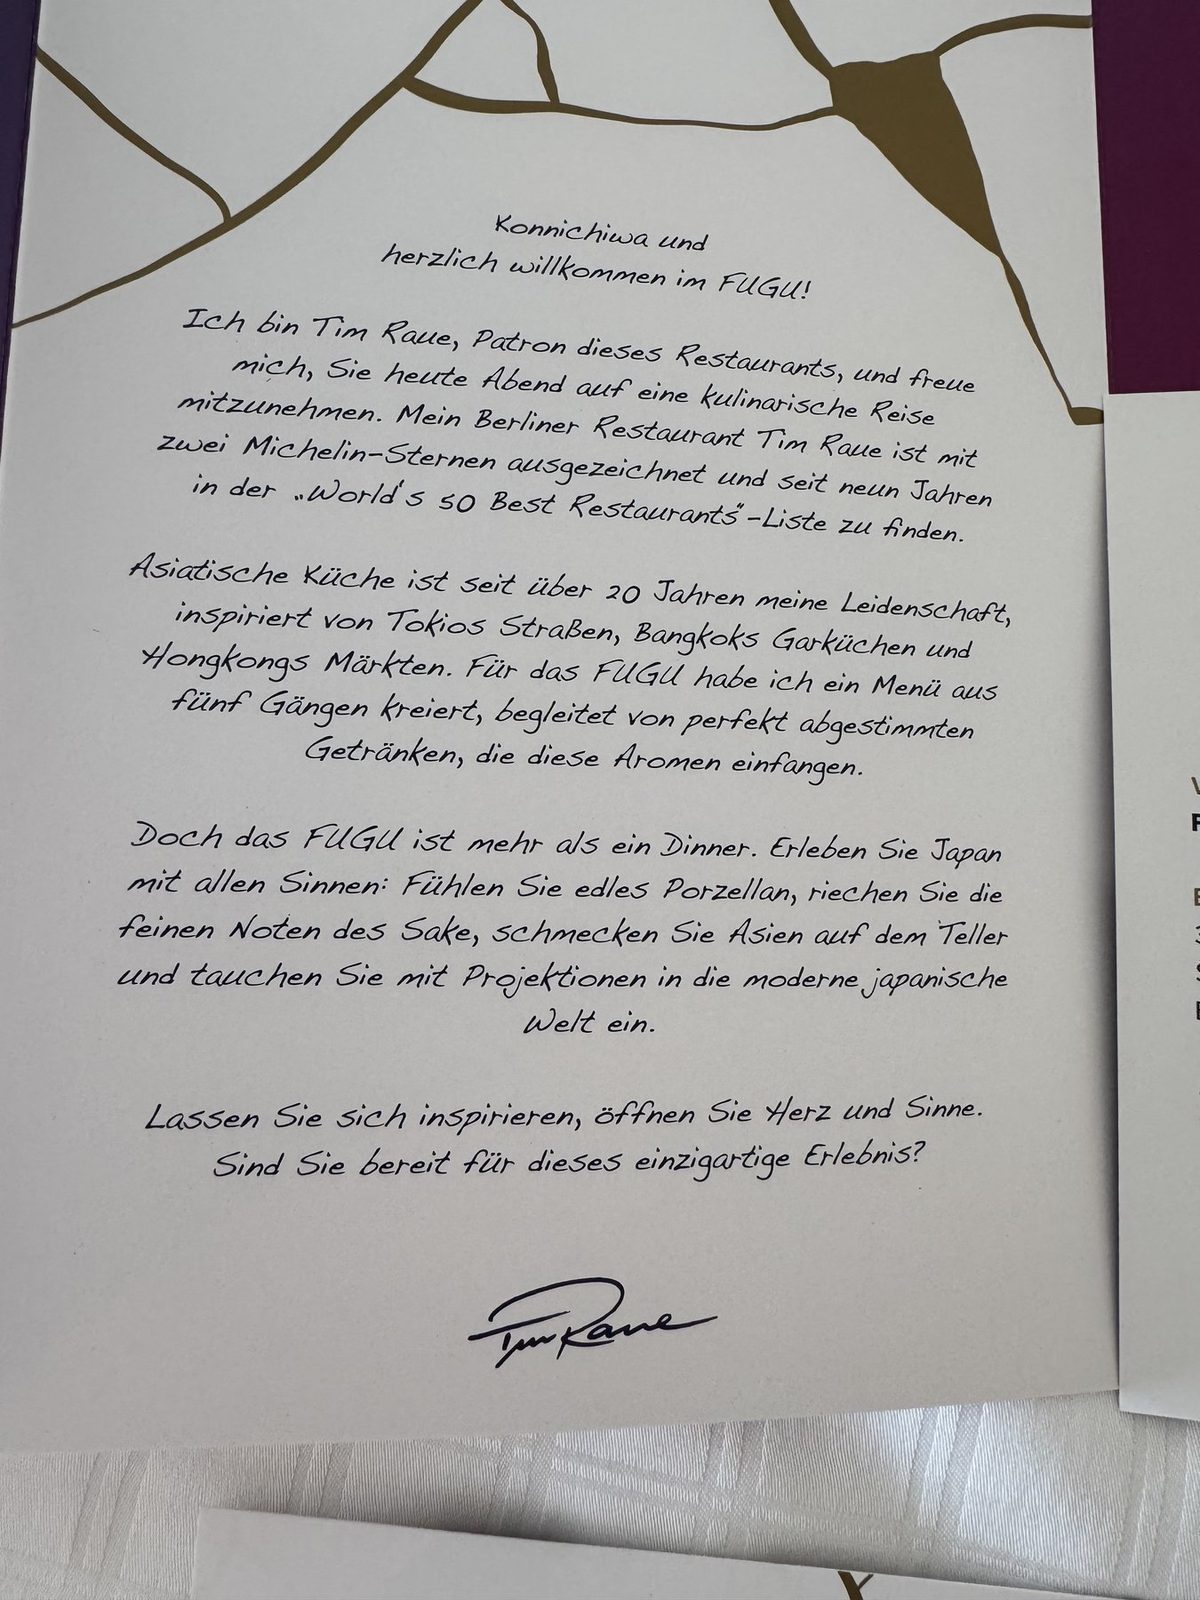 Konnichiwa und
herzlich willkommen im FUGU!
Ich bin Tim Raue, Patron dieses Restaurants, und freue
mich, Sie heute Abend auf eine kulinarische Reise
mitzunehmen. Mein Berliner Restaurant Tim Raue ist mit
zwei Michelin-Sternen ausgezeichnet und seit neun Jahren
in der „World's 50 Best Restaurants"-Liste zu finden.
Asiatische Küche ist seit über 20 Jahren meine Leidenschaft,
inspiriert von Tokios Straßen, Bangkoks Garküchen und
Hongkongs Märkten. Für das FUGU habe ich ein Menü aus
fünf Gängen kreiert, begleitet von perfekt abgestimmten
Getränken, die diese Aromen einfangen.
Doch das FUGU ist mehr als ein Dinner. Erleben Sie Japan
mit allen Sinnen: Fühlen Sie edles Porzellan, riechen Sie die
feinen Noten des Sake, schmecken Sie Asien auf dem Teller
und tauchen Sie mit Projektionen in die moderne japanische
Welt ein.
Lassen Sie sich inspirieren, öffnen Sie Herz und Sinne.
Sind Sie bereit für dieses einzigartige Erlebnis?
Tim Raue